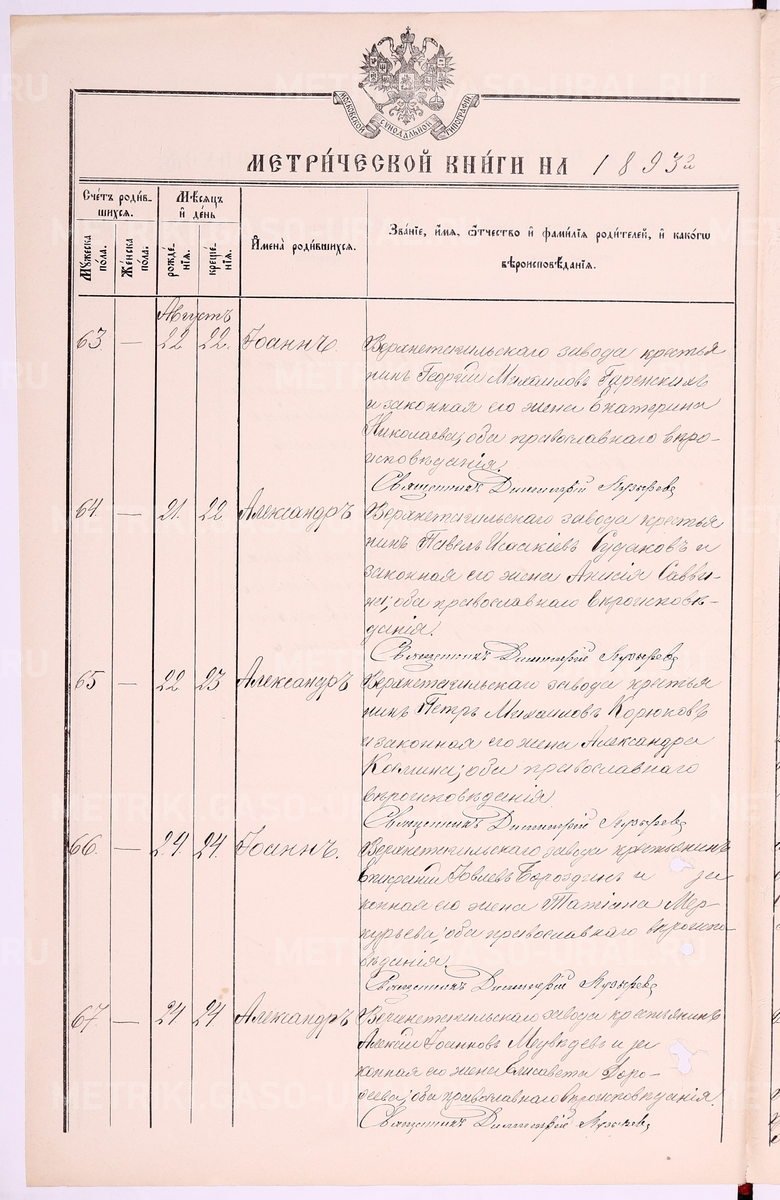 МОСКОВСКОЙ СѴНОДАЛЬНОЙ ТИПОГРАФІИ
МЕТРИ́ЧЕСКОЙ КНИ́ГИ НА 1893й
Сче́тъ роди́в-
шихсѧ.
Мѣ́сѧцъ
и҆ де́нь
И҆мена̀ роди́вшихсѧ.
Зва́нїе, и҆́мѧ, ѻ҆́тчество и҆ фами́лїѧ роди́телей, и҆ како́гѡ
вѣроисповѣ́данїѧ.
Мꙋ́жеска
по́ла.
Же́нска
по́ла.
рожде́-
нїѧ.
креще́-
нїѧ.
Августъ
63. — 22 22. Іоаннъ.
Верхнетагильскаго завода крестья
нинъ Георгій Михаиловъ
и законная его жена Екатерина
Николаева; оба православнаго веро-
исповѣданія.
Священникъ Димитрій
64. — 21. 22 Александръ
Верхнетагильскаго завода крестья
нинъ Павелъ Исаакіевъ Судаковъ и
законная его жена Анисія Савви-
на; оба православнаго вѣроисповѣ-
данія.
Священникъ Димитрій
65 — 22 23 Александръ
Верхнетагильскаго завода крестья
нинъ Петръ Михаиловъ Корюковъ
и законная его жена Александра
Косьмина; оба православнаго
вѣроисповѣданія.
Священникъ Димитрій
66. — 24 24. Іоаннъ.
Верхнетагильскаго завода крестьянинъ
Бороздинъ и за
конная его жена Татіана Мер-
курьева; оба православнаго вѣроиспо-
вѣданія.
Священникъ Димитрій
67 — 24 24 Александръ
Верхнетагильскаго завода крестьянинъ
Алексій Іоанновъ Медвѣдевъ и за
конная его жена Елисавета Доро-
ѳеева; оба православнаго вѣроисповѣданія.
Священникъ Димитрій
METRIKI.GASO-URAL.RU